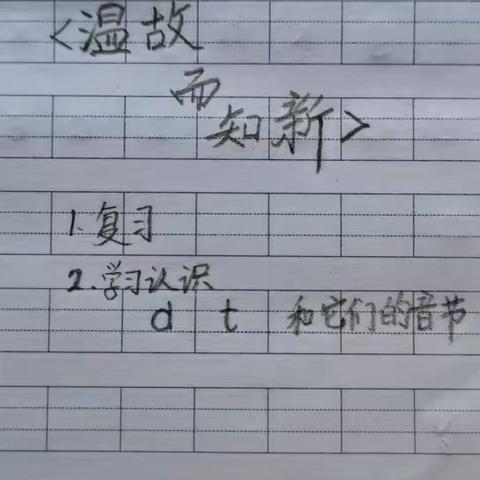 <温故
而
知新>
1.复习
2.学习认识
d t 和它们的音节